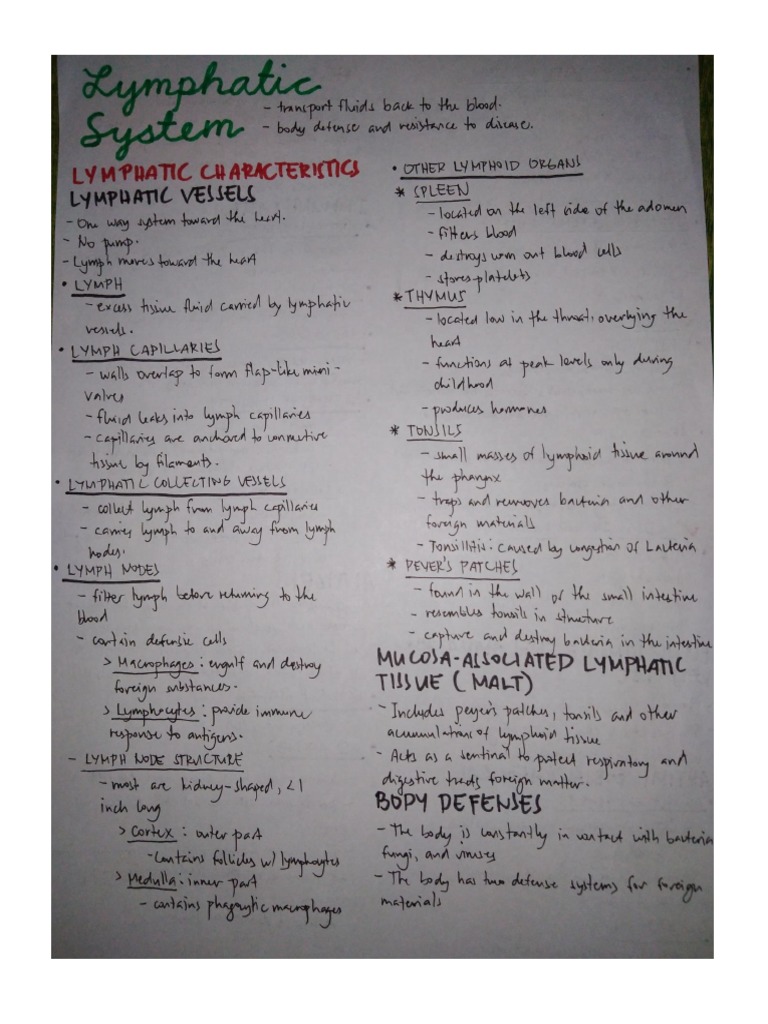 Lymphatic
System
- transport fluids back to the blood.
- body defense and resistance to disease.
LYMPHATIC CHARACTERISTICS
LYMPHATIC VESSELS
- One way system toward the heart.
- No pump.
- Lymph moves toward the heart
• LYMPH
- excess tissue fluid carried by lymphatic
vessels.
• LYMPH CAPILLARIES
- walls overlap to form flap-like mini-
valves
- fluid leaks into lymph capillaries
- capillaries are anchored to connective
tissue by filaments.
• LYMPHATIC COLLECTING VESSELS
- collect lymph from lymph capillaries
- carries lymph to and away from lymph
nodes.
• LYMPH NODES
- filter lymph before returning to the
blood
- contain defensie cells
> Macrophages : engulf and destroy
foreign substances.
> Lymphocytes : provide immune
response to antigens.
- LYMPH NODE STRUCTURE
- most are kidney-shaped, <1
inch long
> Cortex : outer part
- contains follicles w/ lymphocytes
> Medulla : inner part
- contains phagocytic macrophages
• OTHER LYMPHOID ORGANS
* SPLEEN
- located on the left side of the adomen
- filters blood
- destroys worn out blood cells
- stores platelets
* THYMUS
- located low in the throat, overlying the
heart
- functions at peak levels only during
childhood
- produces hormones
* TONSILS
- small masses of lymphoid tissue around
the pharynx
- traps and removes bacteria and other
foreign materials
- Tonsillitis : caused by congestion of bacteria
* PEYER'S PATCHES
- found in the wall of the small intestine
- resembles tonsils in structure
- capture and destroy bacteria in the intestine
MUCOSA-ASSOCIATED LYMPHATIC
TISSUE (MALT)
- Includes peyer's patches, tonsils and other
accumulations of lymphoid tissue
- Acts as a sentinal to protect respiratory and
digestive tracts foreign matter.
BODY DEFENSES
- The body is constantly in contact with bacteria
fungi, and viruses
- The body has two defense systems for foreign
materials